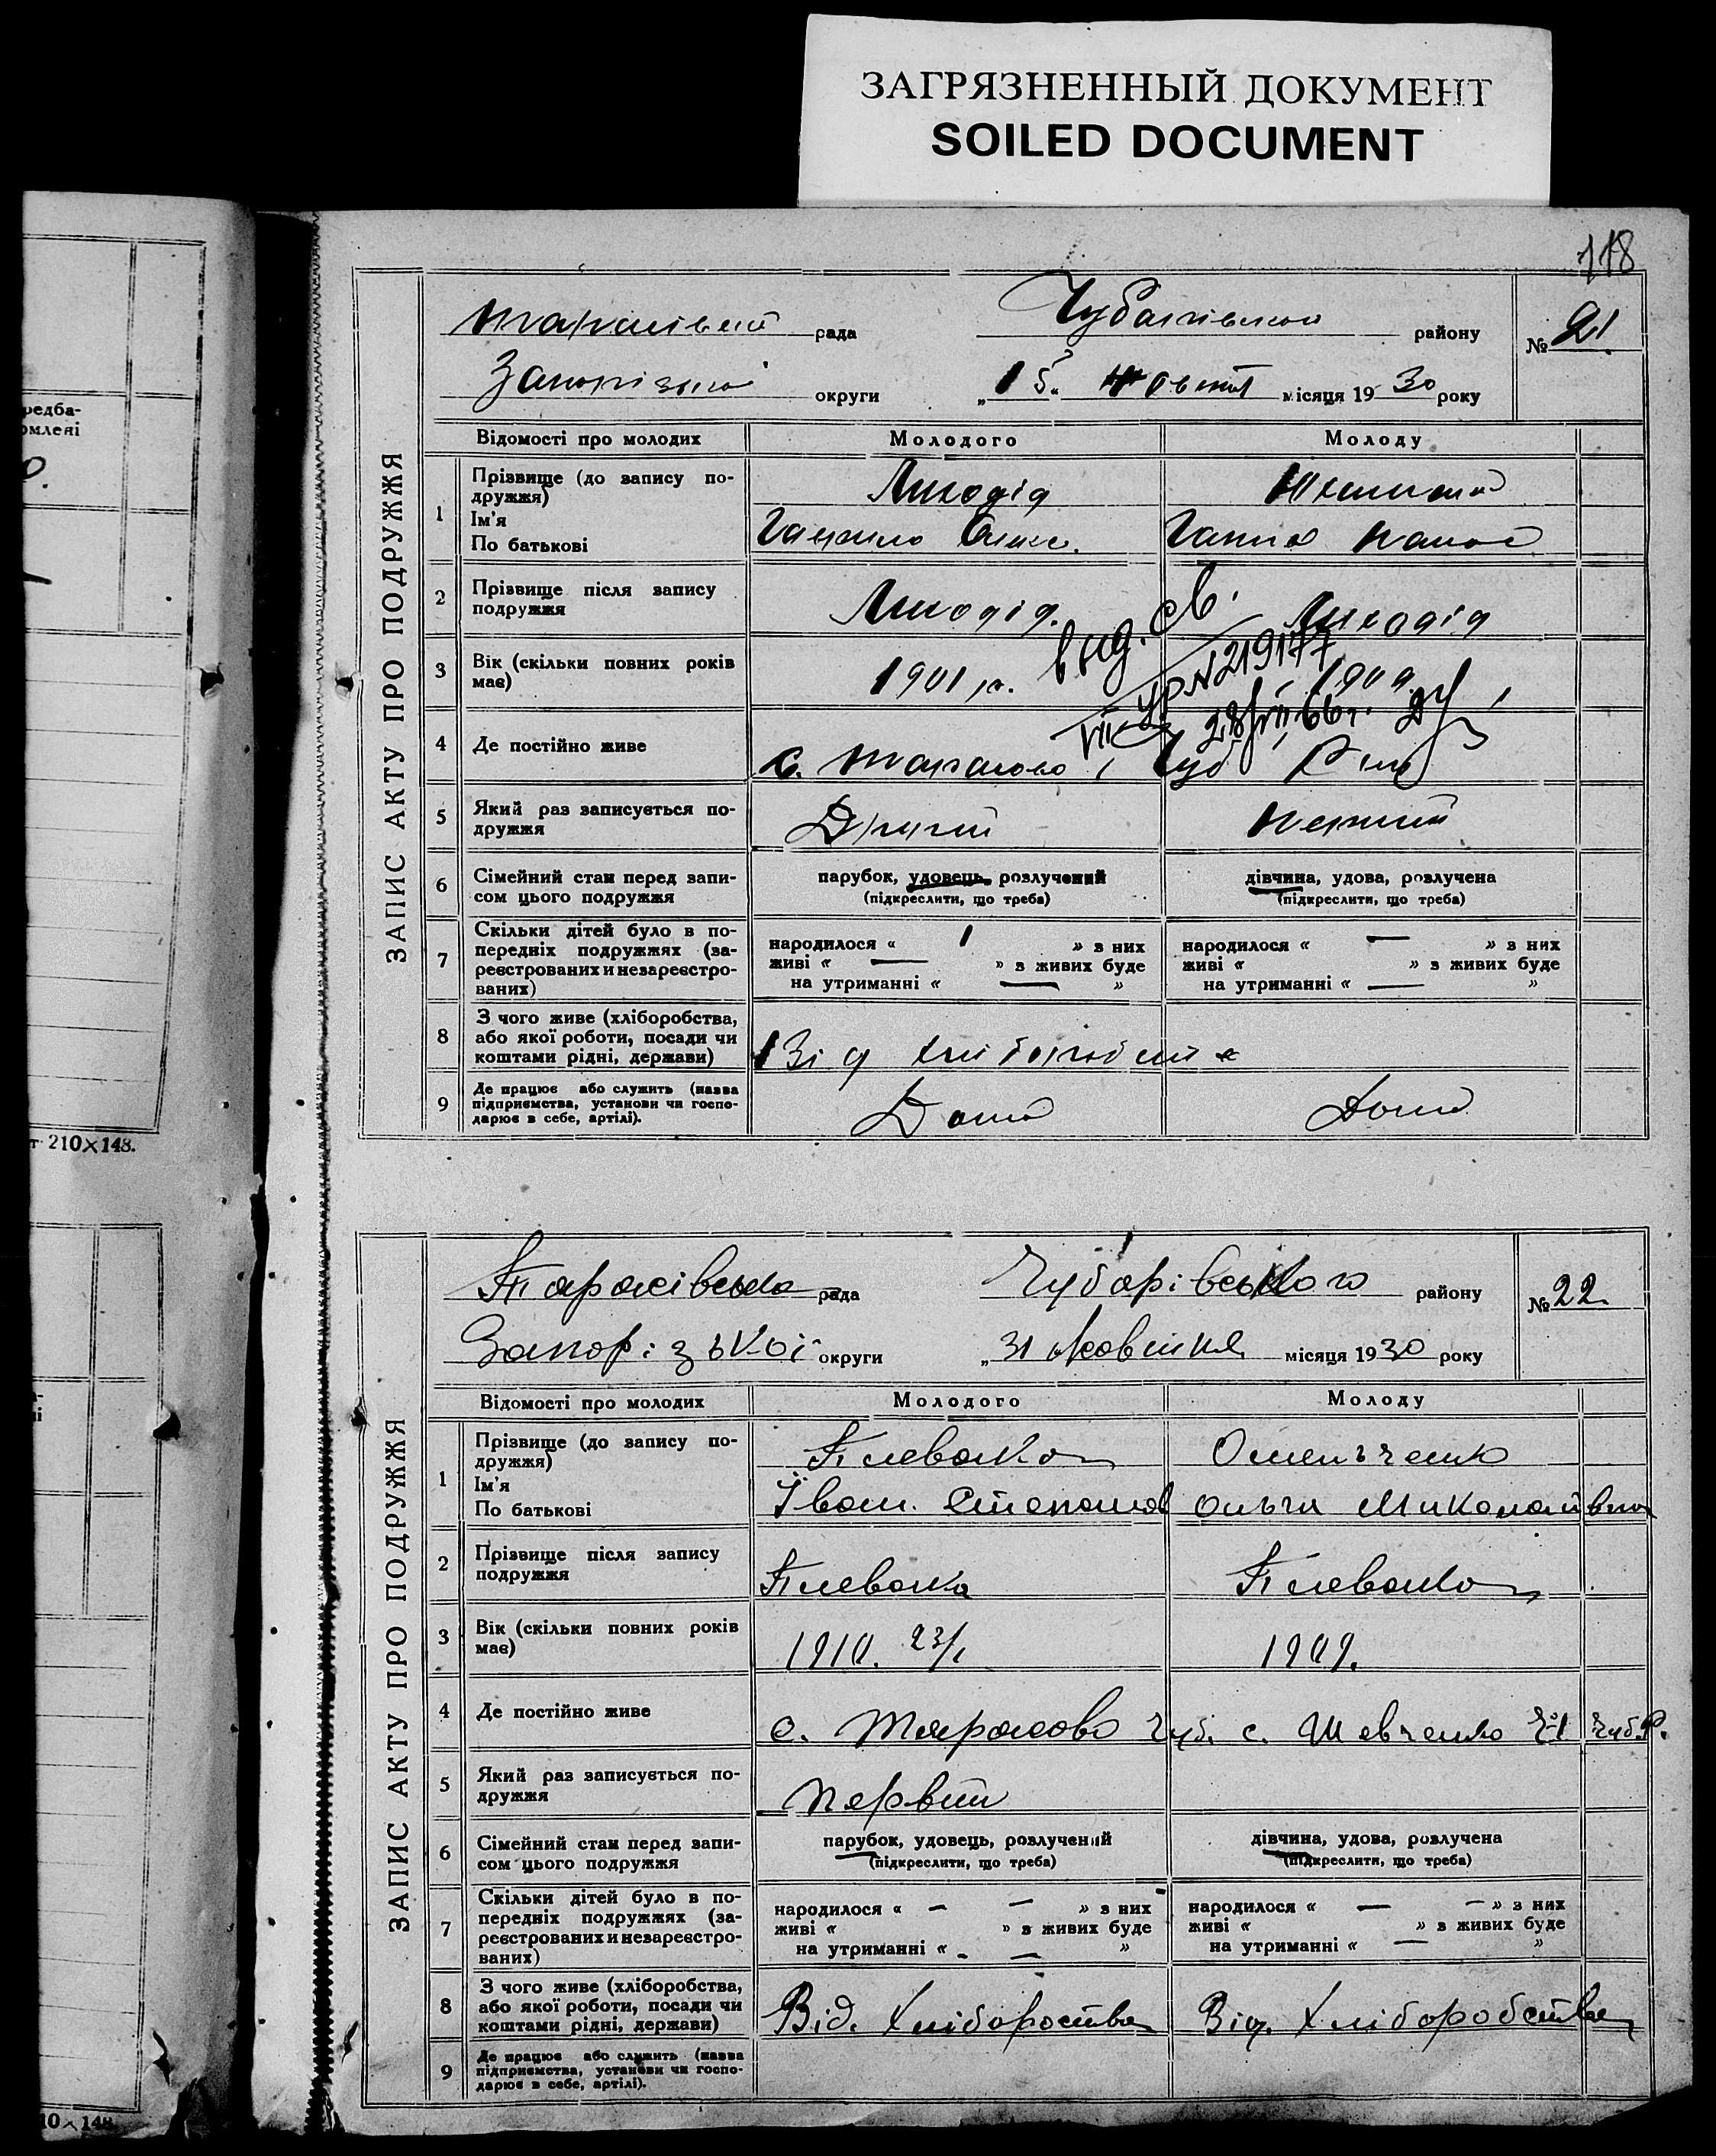 ЗАГРЯЗНЕННЫЙ ДОКУМЕНТ
SOILED DOCUMENT
118
редба-
омлені
т 210×148.
10×148
ЗАПИС АКТУ ПРО ПОДРУЖЖЯ
рада района району № 21
округи „15“ місяця 1930 року
Відомості про молодих Молодого Молоду
1 Прізвище (до запису по-
дружжя) Лиходід
Ім'я
По батькові Ганна
2 Прізвище після запису
подружжя Лиходід. Лиходід
вид. св.
3 Вік (скільки повних років
має) 1901 р. 1909
УР № 219177
28/VII 66 г.
4 Де постійно живе с. Тарасово Чуб
5 Який раз записується по-
дружжя Другий Перший
6 Сімейний стан перед запи-
сом цього подружжя парубок, удовець, розлучений дівчина, удова, розлучена
(підкреслити, що треба) (підкреслити, що треба)
7 Скільки дітей було в по-
передніх подружжях (за-
реєстрованих и незареєстро-
ваних)
народилося « 1 » з них народилося « — » з них
живі « — » з живих буде живі « » з живих буде
на утриманні « — » на утриманні « — »
8 З чого живе (хліборобства,
або якої роботи, посади чи
коштами рідні, держави) Від
9 Де працює або служить (назва
підприємства, установи чи госпо-
дарює в себе, артілі). Дома Дома
ЗАПИС АКТУ ПРО ПОДРУЖЖЯ
Тарасівська рада Чубарівського району № 22.
Запорізької округи „31 жовтня місяця 1930 року
Відомості про молодих Молодого Молоду
1 Прізвище (до запису по-
дружжя) Плевако Омельченко
Ім'я
По батькові Іван. Степанов Ольга Миколаївна
2 Прізвище після запису
подружжя Плевако Плевако
3 Вік (скільки повних років
має) 1910. 23/1 1909.
4 Де постійно живе с. Тарасово Чуб. с. Шевченко №1 Чуб. Р.
5 Який раз записується по-
дружжя Первий
6 Сімейний стан перед запи-
сом цього подружжя парубок, удовець, розлучений дівчина, удова, розлучена
(підкреслити, що треба) (підкреслити, що треба)
7 Скільки дітей було в по-
передніх подружжях (за-
реєстрованих и незареєстро-
ваних)
народилося « — — » з них народилося « — — » з них
живі « » з живих буде живі « » з живих буде
на утриманні « - — » на утриманні « — »
8 З чого живе (хліборобства,
або якої роботи, посади чи
коштами рідні, держави) Від. Хлібороства Від. Хліборобства
9 Де працює або служить (назва
підприємства, установи чи госпо-
дарює в себе, артілі).